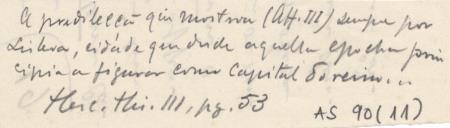 A predilecção que mostrou (Aff. III) sempre por
Lisboa, cidade que desde aquella epocha prin
cipia a figurar como Capital do reino...
Herc. His. III, pg. 53
AS 90 (11)